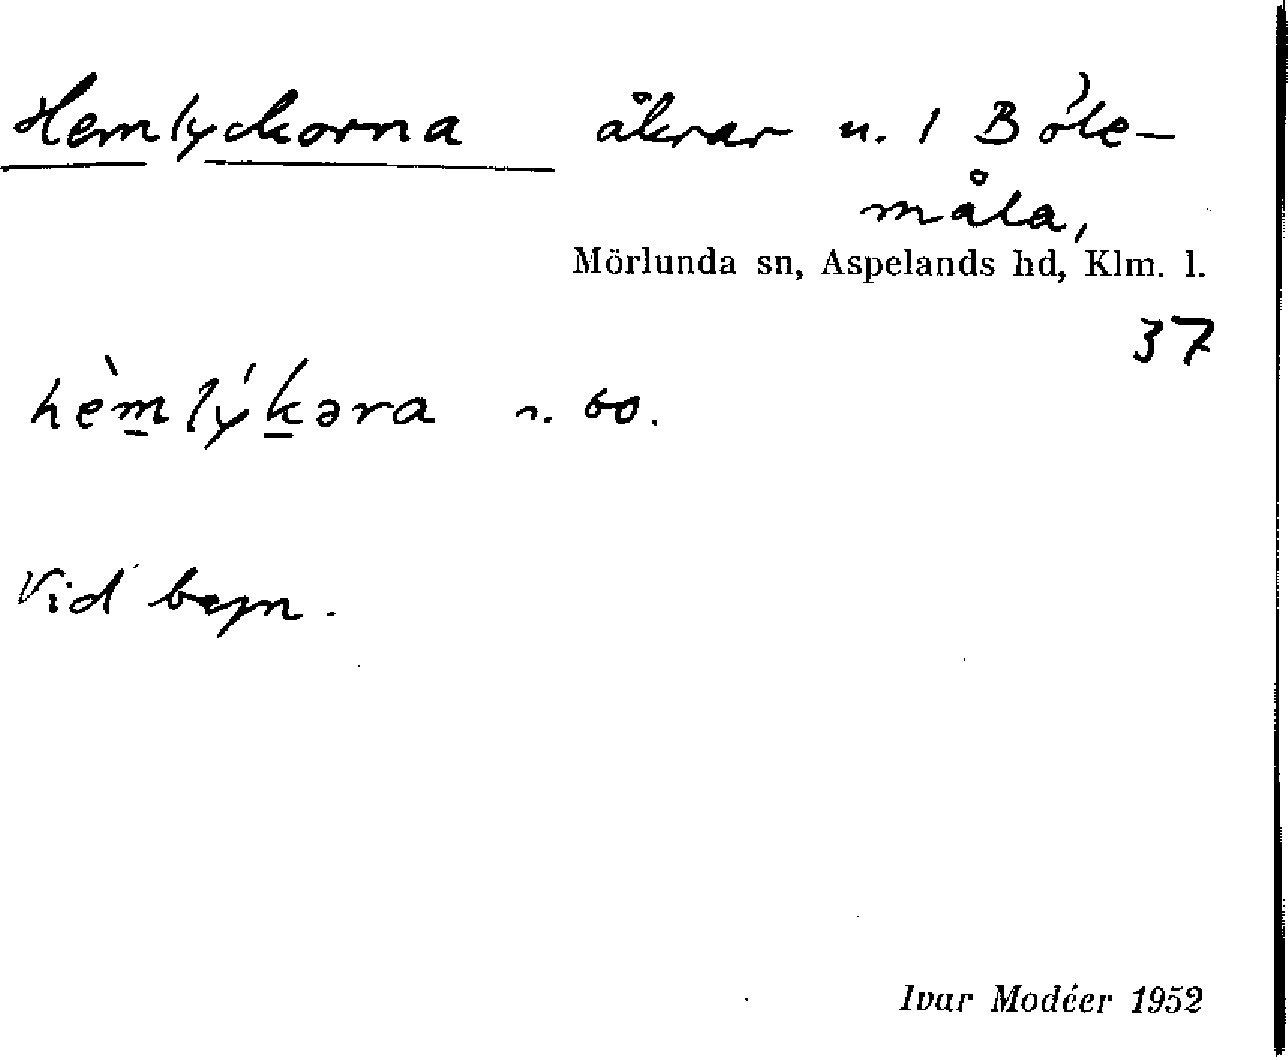 Hemlyckorna åkrar u. 1 Bóle-
måla,
Mörlunda sn, Aspelands hd, Klm. l.
37
hèmlýkəra
Vid
Ivar Modéer 1952